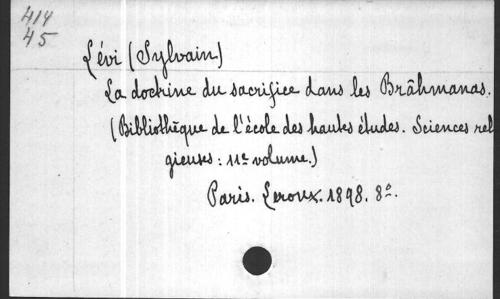 414
45
Lévi (Sylvain)
La doctrine du sacrifice dans les Brâhmanas.
(Bibliothèque de l'école des hautes études. Sciences reli
gieuses : 11e volume.)
Paris. Leroux. 1898. 8°.